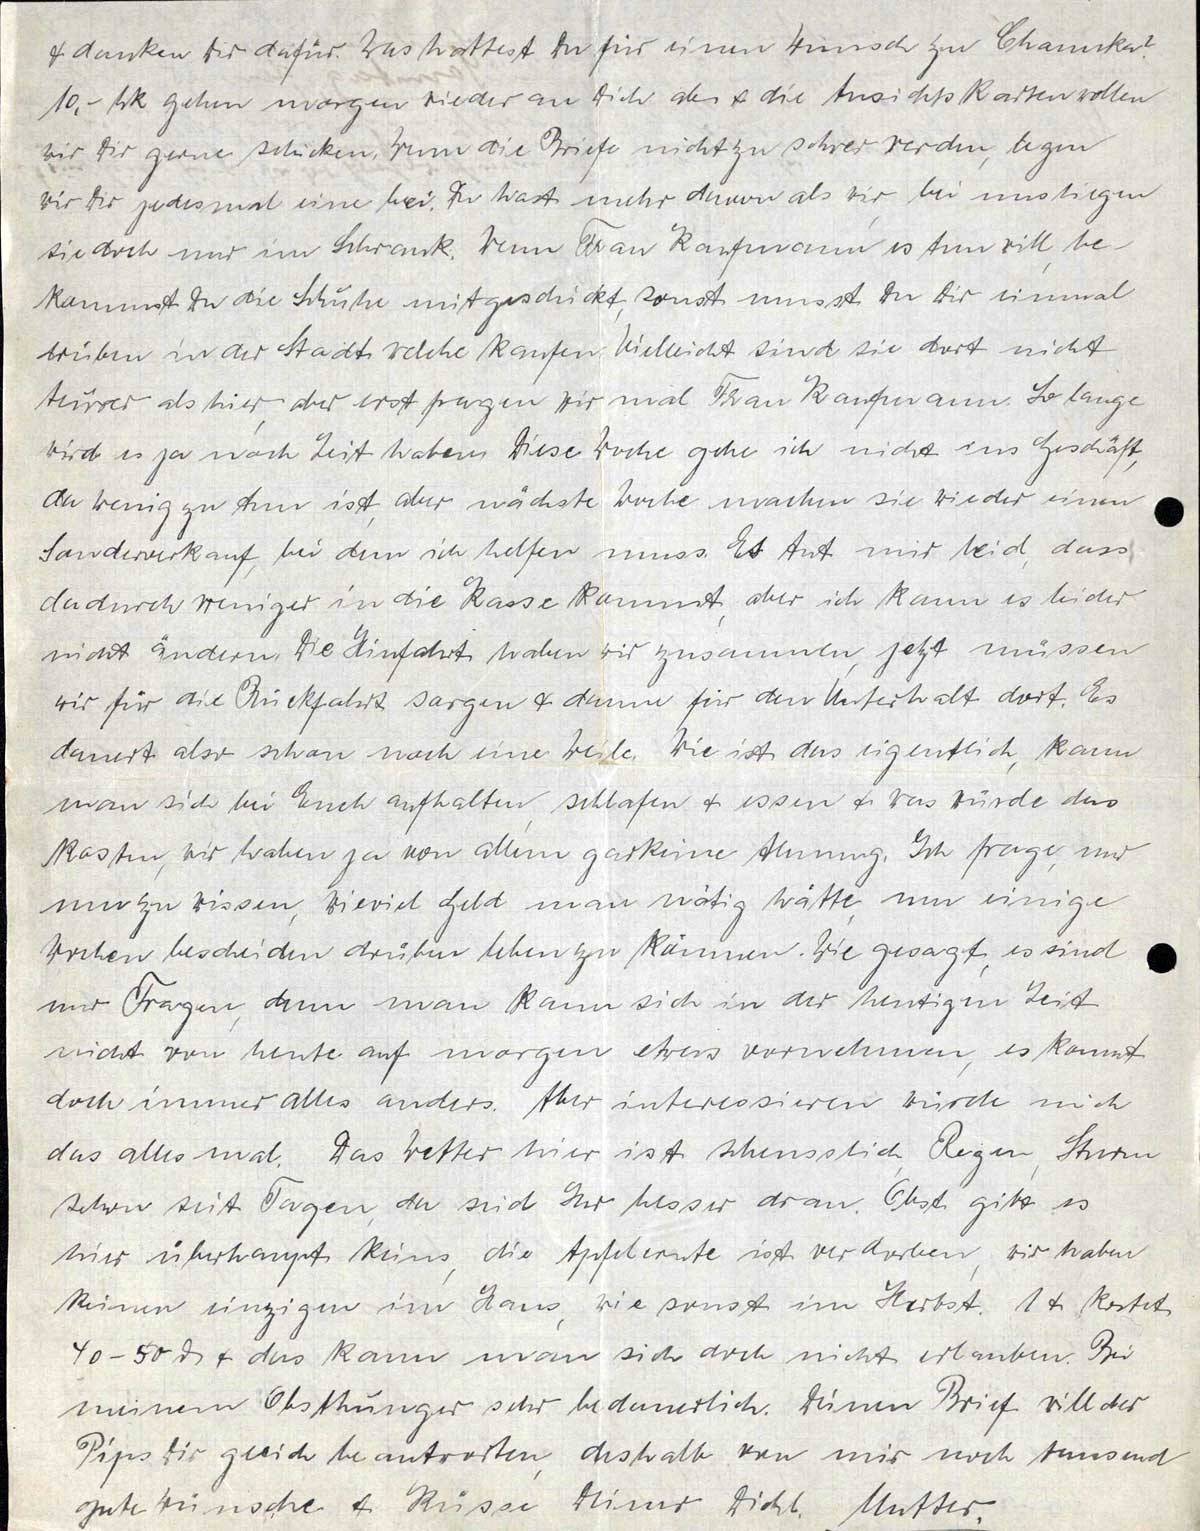 & danken Dir dafür. Was hattest Du für einen Wunsch zu Chanuka?
10,- Mk gehen morgen wieder an Dich ab & die Ansichtskarten wollen
wir Dir gerne schicken. Wenn die Briefe nicht zu schwer werden, legen
wir Dir jedesmal eine bei. Du hast mehr davon als wir, bei uns liegen
sie doch nur im Schrank. Wenn Frau Kaufmann es tun will, be-
kommst Du die Schuhe mitgeschickt, sonst musst Du Dir einmal
drüben in der Stadt welche kaufen. Vielleicht sind sie dort nicht
teurer als hier, aber erst fragen wir mal Frau Kaufmann. So lange
wird es ja noch Zeit haben. Diese Woche gehe ich nicht ins Geschäft,
da wenig zu tun ist, aber nächste Woche machen sie wieder einen
Sonderverkauf, bei dem ich helfen muss. Es tut mir leid, dass
dadurch weniger in die Kasse kommt, aber ich kann es leider
nicht ändern. Die Hinfahrt haben wir zusammen, jetzt müssen
wir für die Rückfahrt sorgen & dann für den Unterhalt dort. Es
dauert also schon noch eine Weile. Wie ist das eigentlich, kann
man sich bei Euch aufhalten, schlafen & essen & was würde das
kosten, wir haben ja von allem garkeine Ahnung. Ich frage, nur
um zu wissen, wieviel Geld man nötig hätte, um einige
Wochen bescheiden drüben leben zu können. Wie gesagt, es sind
nur Fragen, denn man kann sich in der heutigen Zeit
nicht von heute auf morgen etwas vornehmen, es kommt
doch immer alles anders. Aber interessieren würde mich
das alles mal. Das Wetter hier ist scheusslich, Regen, Sturm
schon seit Tagen, da seid Ihr besser dran. Obst gibt es
hier überhaupt keins, die Apfelernte ist verdorben, wir haben
keinen einzigen im Haus, wie sonst im Herbst. 1 kostet
40-50 & das kann man sich doch nicht erlauben. Bei
meinem Obsthunger sehr bedauerlich. Deinen Brief will der
Pips Dir gleich beantworten, deshalb von mir noch tausend
gute Wünsche & Küsse Deiner Dichl. Mutter.